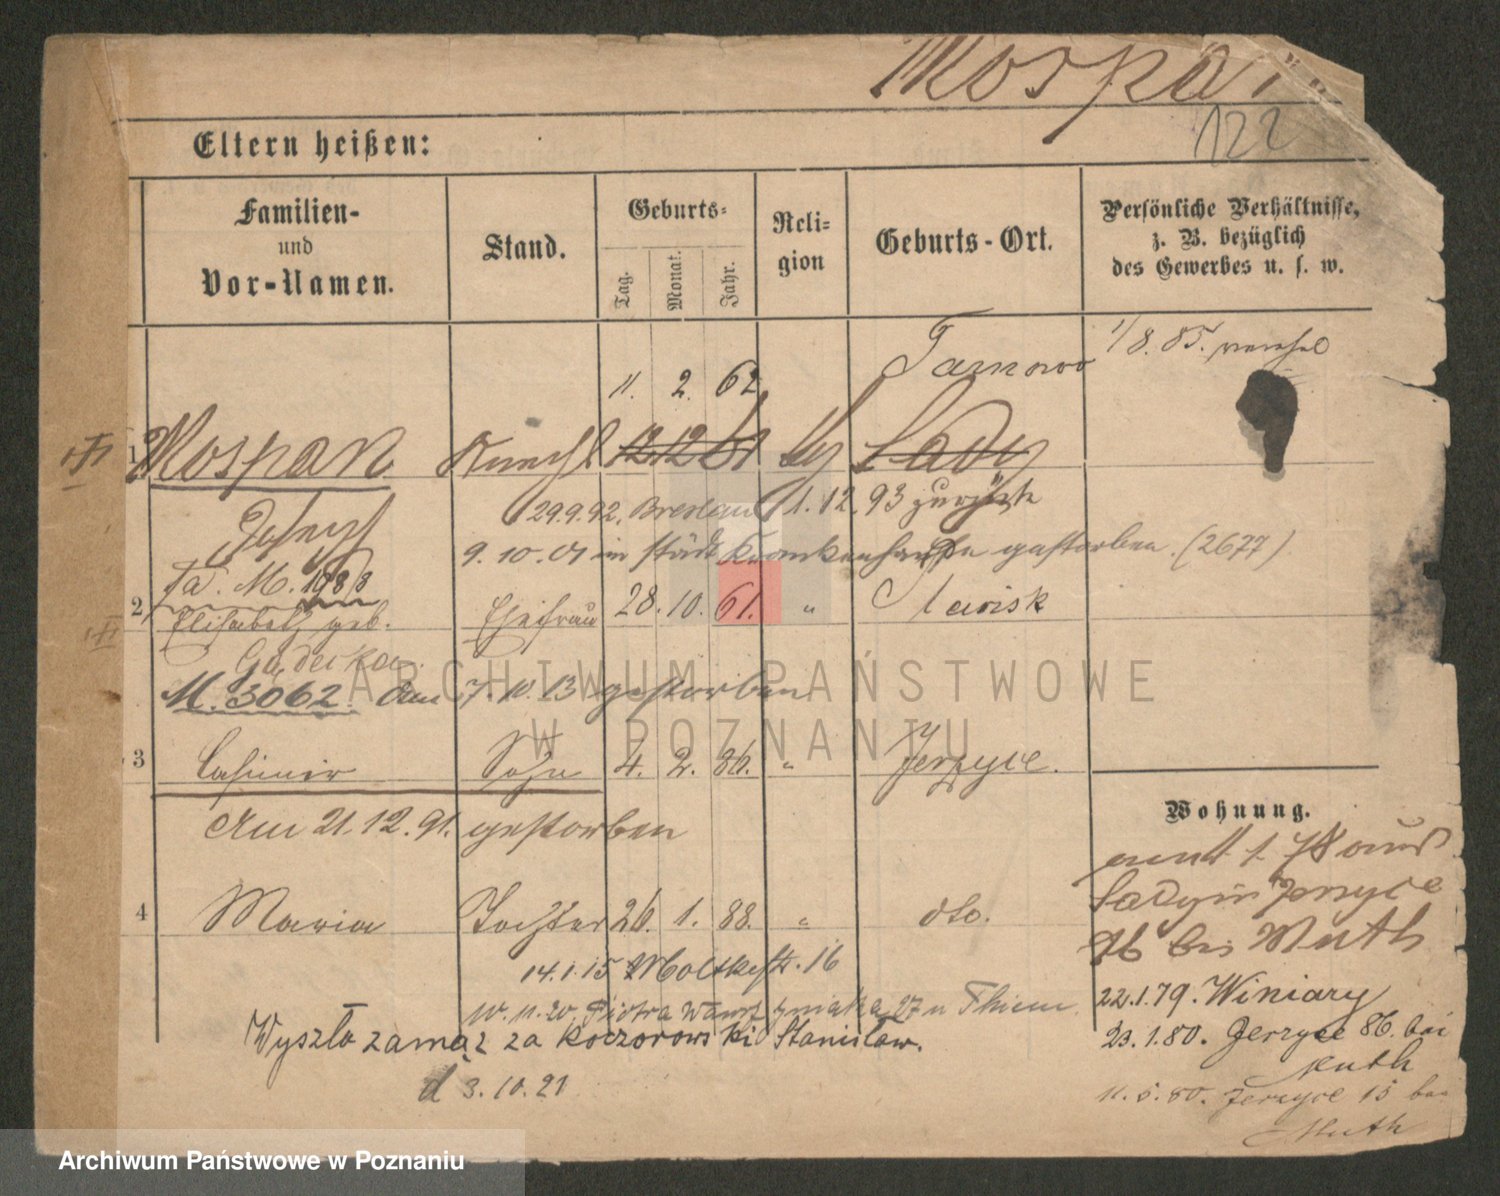 Mospan
122
Eltern heißen:
Familien-
und
Vor-Namen.
Stand.
Geburts-
Tag.
Monat.
Jahr.
Reli-
gion
Geburts-Ort.
Persönliche Verhältnisse,
z. B. bezüglich
des Gewerbes u. s. w.
11. 2. 62
Tarnowo
1/8. 85.
1 Mospan Knecht 12.12.61 Lady
Josef
29.9.92. Breslau 1.12.93 zurück
9.10.01 im städt. Krankenhause gestorben. (2677)
Fa. M. 1983
2 Elisabeth geb. Ehefrau 28. 10. 61. "
M. 3062. Am 7.10.13 gestorben
3 Casimir Sohn 4. 2. 86. " Jerzyce.
Am 21.12.91. gestorben
Wohnung.
Lady in Jerzyce
86 bei Muth
4 Maria Tochter 26. 1. 88. " dto.
14.1.15 Moltkestr. 16
22.1.79. Winiary
10.11.20. Piotra Wawrzyniaka 27 u Thiem.
23.1.80. Jerzyce 86. bei
Muth
Wyszła zamąż za Koczorowski Stanisław.
d 3.10.21
11.5.80. Jerzyce 15 bei
Muth
ARCHIWUM PAŃSTWOWE
W POZNANIU
Archiwum Państwowe w Poznaniu